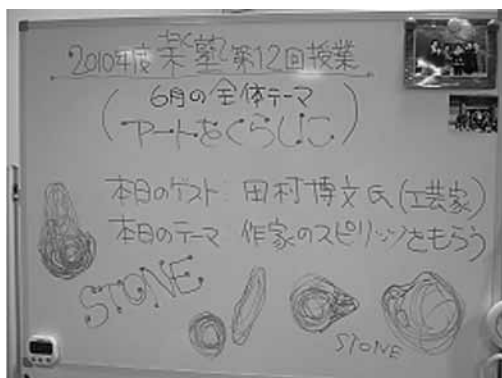 2010年度 楽塾 第12回授業
(6月の全体テーマ
アートをくらしに)
本日のゲスト: 田村博文氏(工芸家)
本日のテーマ 作家のスピリッツをもらう
STONE
STONE